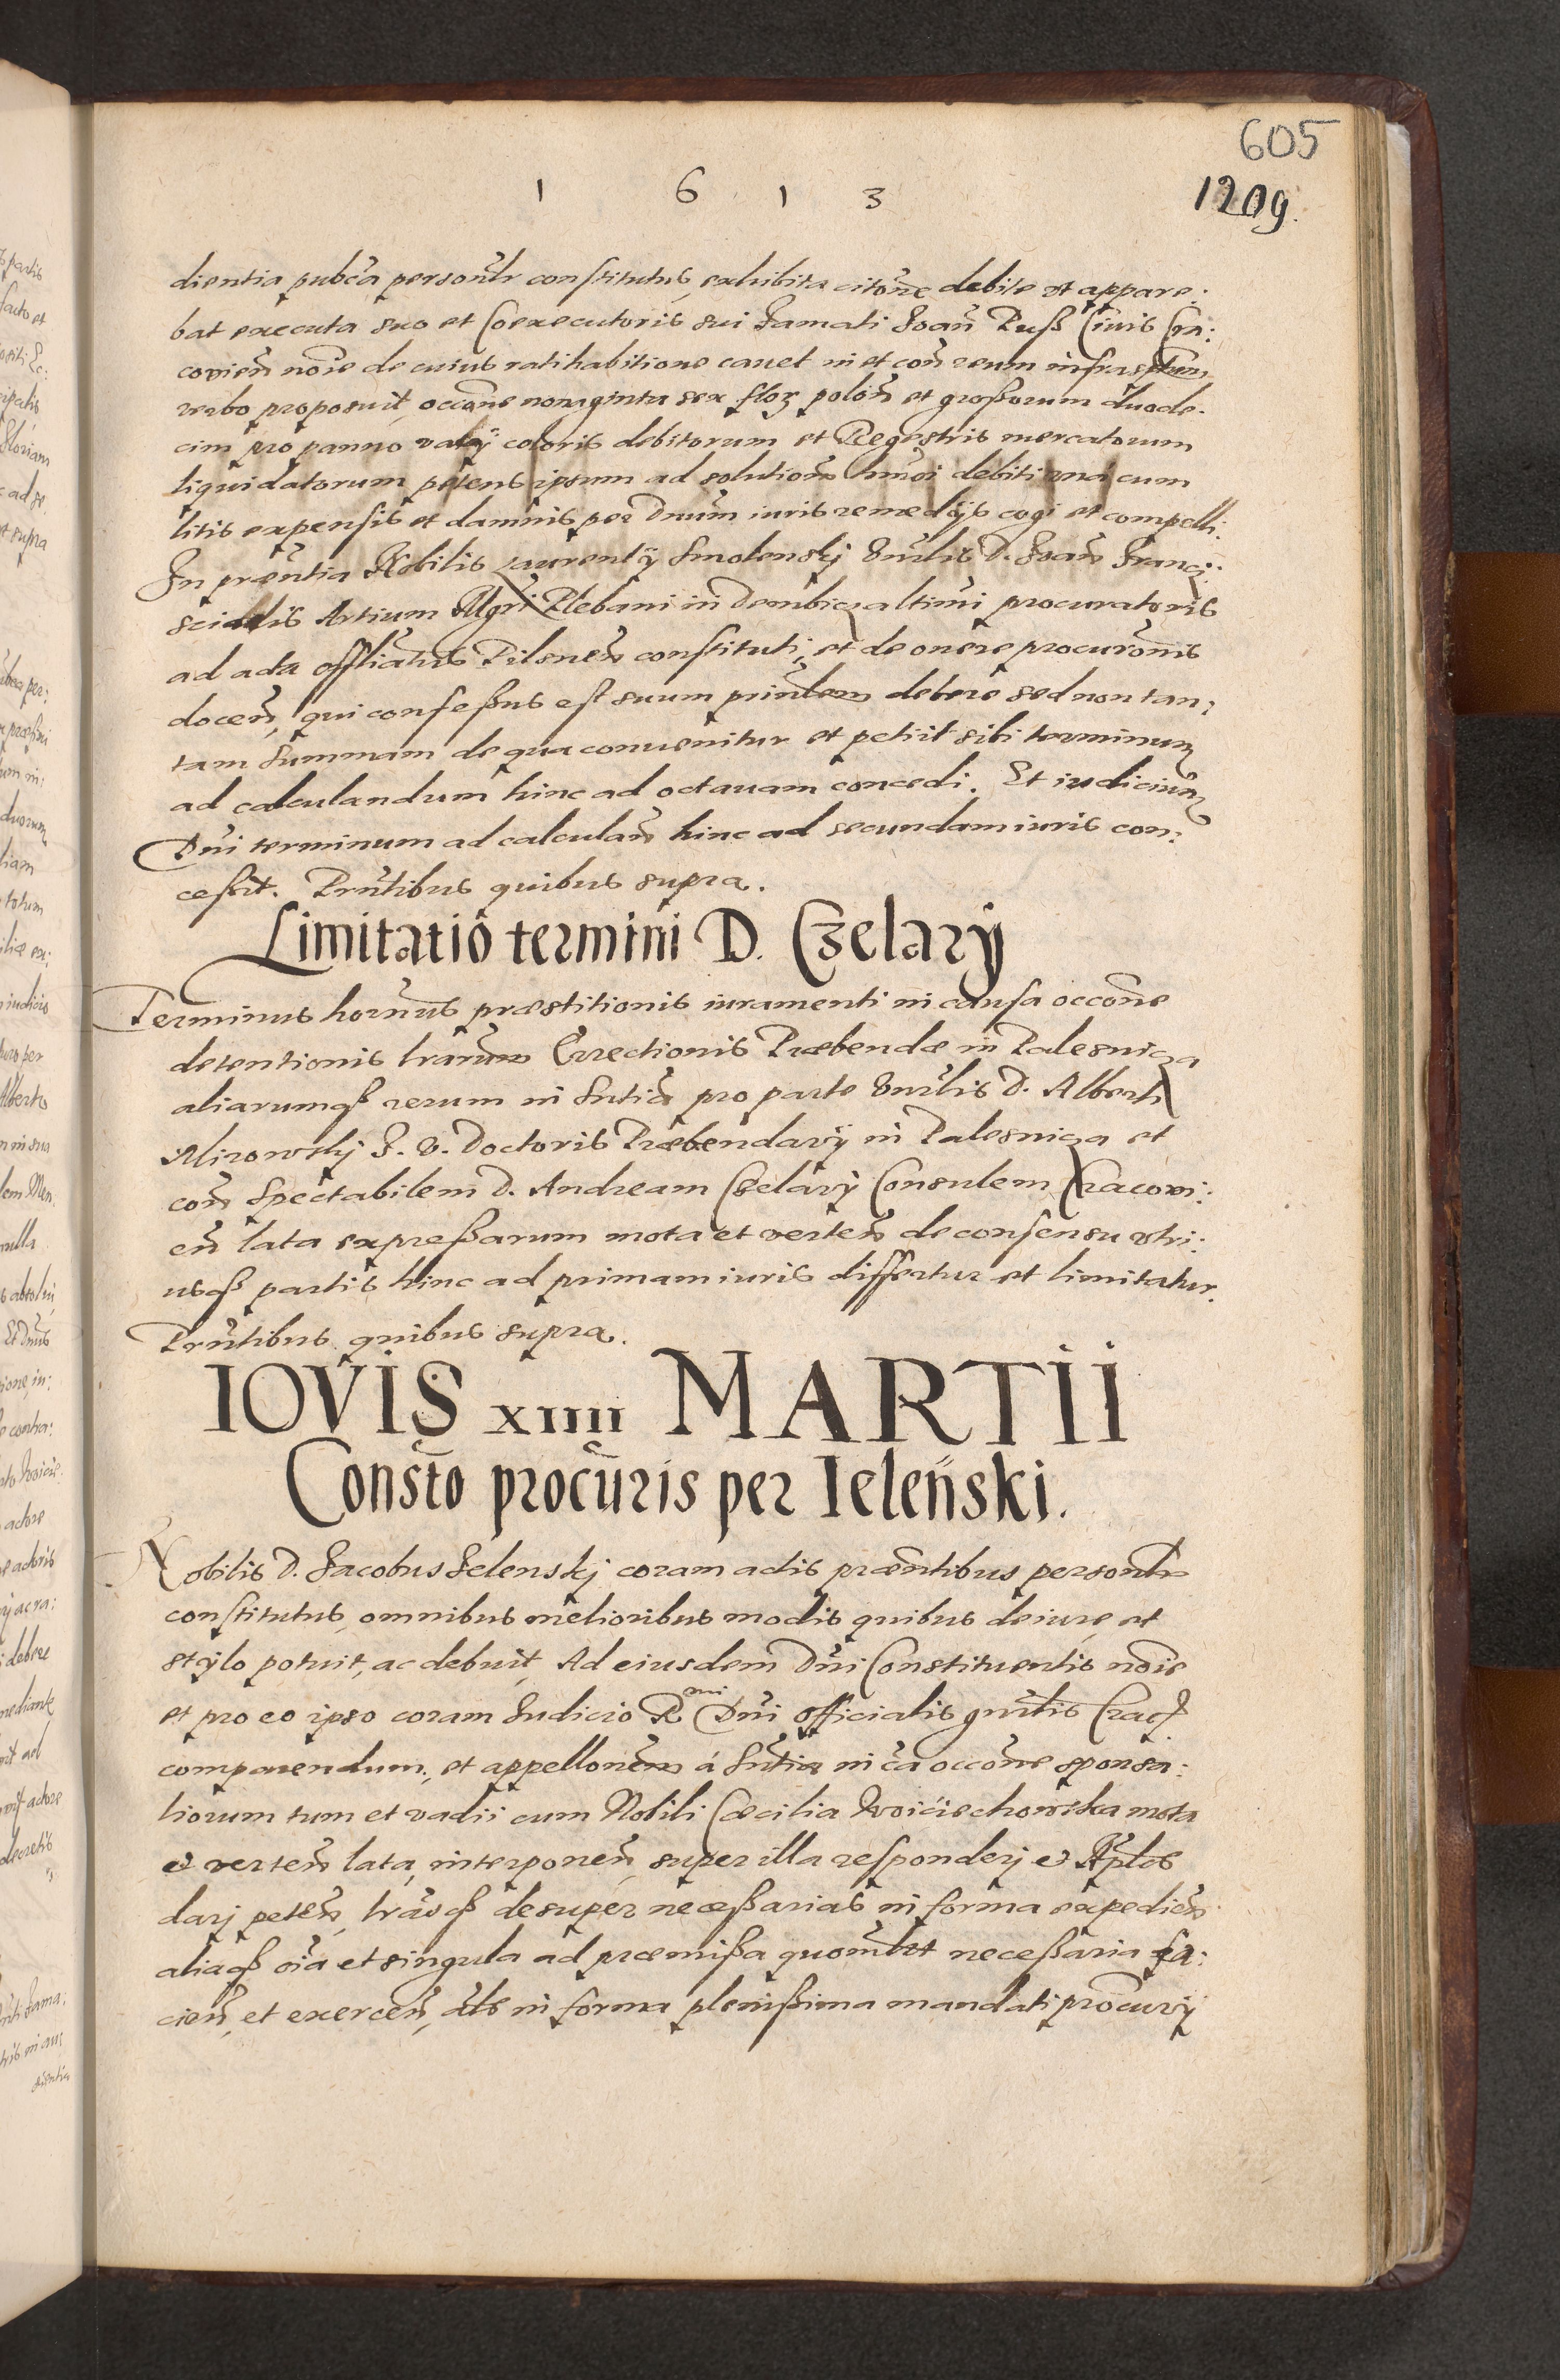 605
1 6 1 3
1209.
dientia pub̃ca personãlr constitutus, exhibita citõne debite ut appare:
bat executa suo et Coexecutoris sui Famati Joañ Russ Civis Cra:
covieñ noĩe de cuius ratihabitione cavet in et coñ reum infrascptum
verbo proposuit, occõne nonaginta sex floz poloñ et grossorum duode:
cim pro panno varij coloris debitorum et Regestris mercatorum
liquidatorum petens ipsum ad solutionẽ hmõi debiti una cum
litis expensis et damnis per Dnum iuris remedijs cogi et compelli.
In præntia Nobilis Laurentij Smolenskj Vnrlis D. Joañ Franci:
sci Artium Mgri Plebani in Dembicza ltimi procuratoris
ad acta offliatus Pilsneñ constituti, et de onere procurõnis
doceñ, qui confessus est suum prinlem debere sed non tan:
tam Summam de qua convenitur et petiit sibi terminum
ad calculandum hinc ad octavam concedi. Et iudicium
Dni terminum ad calculañ hinc ad secundam iuris con:
cessit. Prñtibus quibus supra.
Limitatio termini D. Czelary
Terminus hornus præstitionis iuramenti in causa occõne
detentionis lrarum Errectionis Præbendæ in Palesnica
aliarumqz rerum in Sntia pro parte Vnrlis D. Alberti
Mirowskj J. V. Doctoris Præbendarij in Palesnica et
coñ Spectabilem D. Andream Czelary Consulem Cracovi:
eñ lata expressarum mota et verteñ de consensu utri:
usqz partis hinc ad primam iuris differtur et limitatur.
Prñtibus quibus supra.
IOVIS XIIII MARTII
Consto procuris per Ieleński.
Nobilis D. Jacobus Jelenskj coram actis præntibus personlr
constitutus, omnibus melioribus modis quibus de iure, et
stylo potuit, ac debuit, Ad eiusdem Dni Constituentis noĩe
et pro eo ipso coram Judicio Rmi Dni officialis gnrlis Crac
comparendum, et appellonem á Sntia in cã occõne sponsa:
liorum tum et vadii cum Nobili Cæcilia Woiciechowska mota
et verteñ lata, interponeñ, super illa responderj et Aplos
darj peteñ, lrasqz desuper necessarias in forma expedieñ
aliaqz oĩa et singula ad præmissa quomlbt necessaria fa:
cieñ, et exerceñ, als in forma plenissima mandati procurij